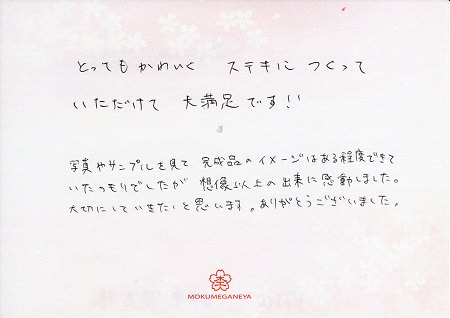 とってもかわいく ステキに つくって
いただけて 大満足です!!
写真やサンプルを見て 完成品のイメージはある程度できて
いたつもりでしたが 想像以上の出来に感動しました。
大切にしていきたいと思います。ありがとうございました。
MOKUMEGANEYA